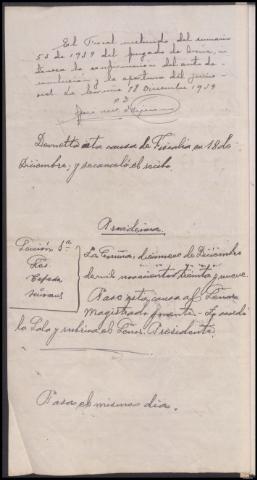 El Fiscal instruido del sumario
53 de 1939 del juzgado de
la confirmación del auto de
conclusión y la apertura del juicio
oral. La Coruña 18 Diciembre 1939
Devuelta esta causa de Fiscalía en 18 de
Diciembre, y se canceló el recibo.
Providencia
Sección 1ª
Sres.
La Coruña, diecinueve de Diciembre
de mil novecientos treinta y nueve.
Pase esta causa al Señor
Magistrado Ponente. Lo acordó
la Sala y rubrica el Señor Presidente.
Pasa el mismo día.